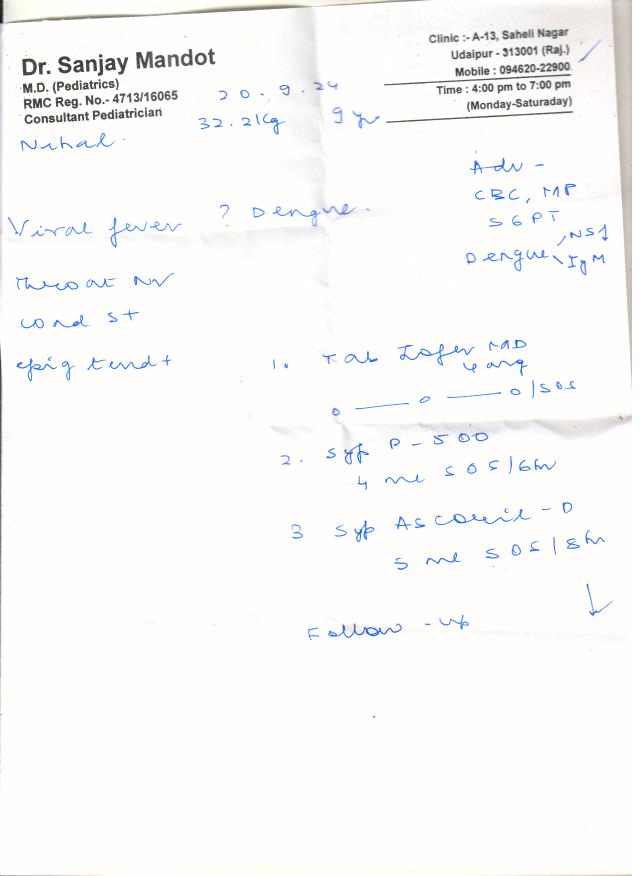 Dr. Sanjay Mandot
M.D. (Pediatrics)
RMC Reg. No.- 4713/16065
Consultant Pediatrician
Clinic :- A-13, Saheli Nagar
Udaipur - 313001 (Raj.)
Mobile : 094620-22900
Time : 4:00 pm to 7:00 pm
(Monday-Saturaday)
20.9.24
32.2kg 9yr
Nihal
Adv -
CBC, MP
SGPT
Dengue NS1
IgM
Viral fever ? Dengue.
Throat
cond st
epig tend+
1. Tab MD
4 mg
0 — 0 — 0/SOS
2. Syp P-500
4 ml SOS/6hr
3 Syp Ascoril-D
5 ml SOS/8hr
Follow-up